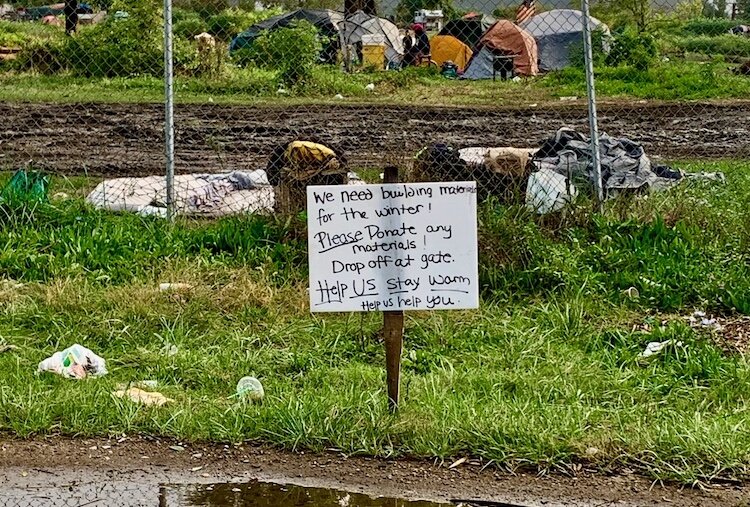 We need building materials
for the winter!
Please Donate any
materials!
Drop off at gate.
Help US stay warm
Help us help you.